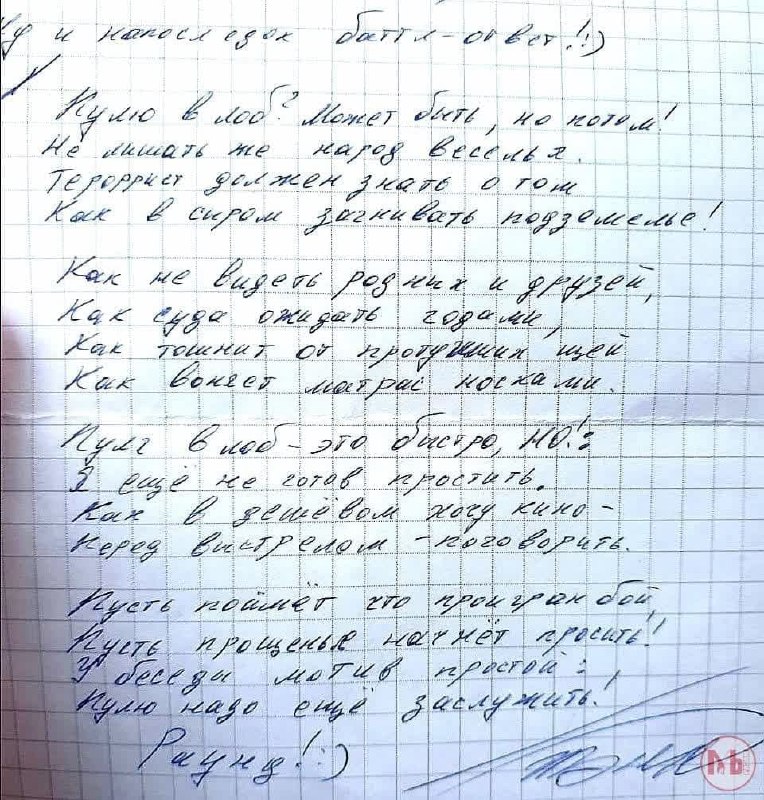 Ну и напоследок баттл-ответ! :)
Пулю в лоб? Может быть, но потом!
Не лишать же народ веселья.
Терорист должен знать о том
Как в сыром загнивать подземелье!
Как не видеть родных и друзей,
Как суда ожидать годами,
Как тошнит от протухших щей
Как воняет матрас носками.
Пуля в лоб - это быстро, НО!:
Я ещё не готов простить.
Как в дешёвом хочу кино -
Перед выстрелом - поговорить.
Пусть поймёт что проигран бой,
Пусть прощенья начнёт просить!
У беседы мотив простой:
Пулю надо ещё заслужить!
Раунд! :)